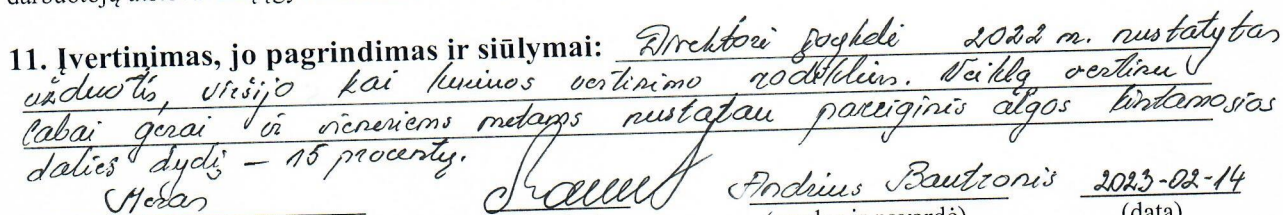 11. Įvertinimas, jo pagrindimas ir siūlymai: Direktorė įvykdė 2022 m. nustatytas
užduotis, viršijo kai kuriuos vertinimo rodiklius. Veiklą vertinu
labai gerai ir vieneriems metams nustatau pareiginės algos kintamosios
dalies dydį – 15 procentų.
Meras Andrius Bautronis 2023-02-14
(data)